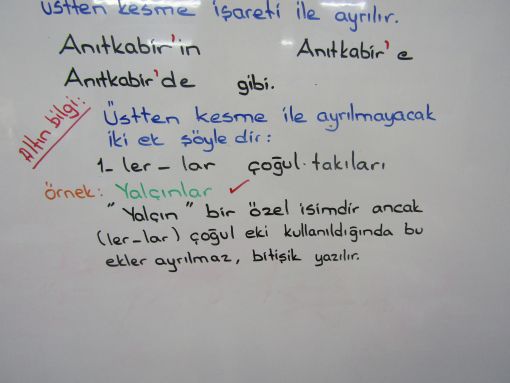 üstten kesme işareti ile ayrılır.
Anıtkabir'in Anıtkabir'e
Anıtkabir'de gibi.
Altın bilgi:
Üstten kesme ile ayrılmayacak
iki ek şöyle dir:
1- ler - lar çoğul takıları
örnek: Yalçınlar ✓
"Yalçın" bir özel isimdir ancak
(ler-lar) çoğul eki kullanıldığında bu
ekler ayrılmaz, bitişik yazılır.